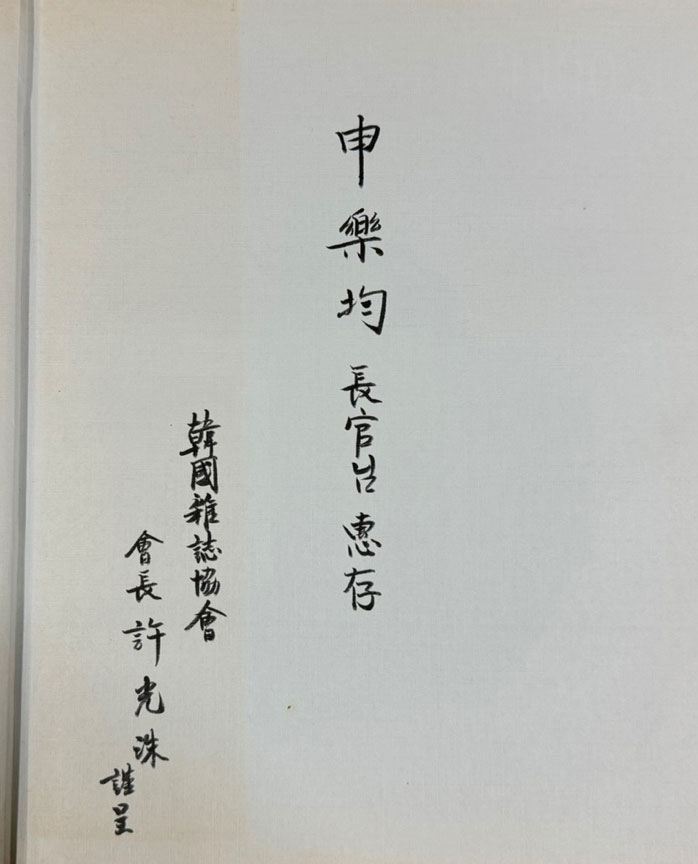 申樂均 長官님 惠存
韓國雜誌協會
會長 許光洙
謹呈